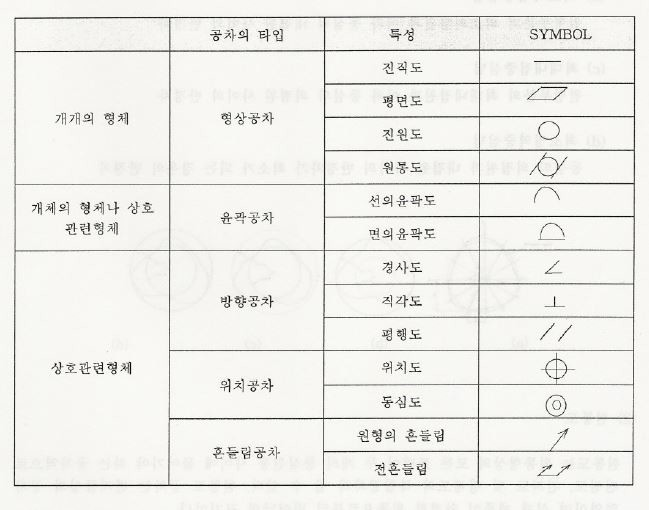 공차의 타입 특성 SYMBOL
개개의 형체 형상공차 진직도
평면도
진원도
원통도
개체의 형체나 상호
관련형체
윤곽공차 선의윤곽도
면의윤곽도
상호관련형체 방향공차 경사도
직각도
평행도
위치공차 위치도
동심도
흔들림공차 원형의 흔들림
전흔들림